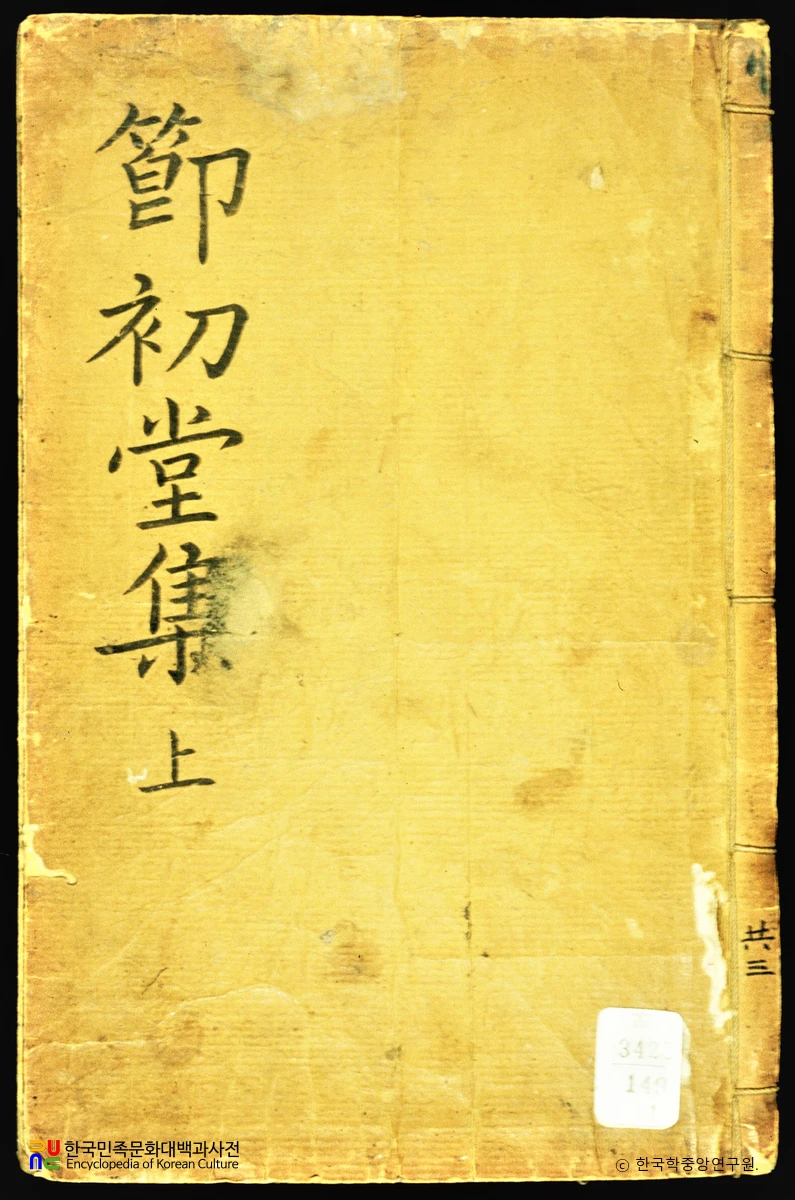 節初堂集 上
共三
342
149
1
한국민족문화대백과사전
Encyclopedia of Korean Culture
© 한국학중앙연구원.